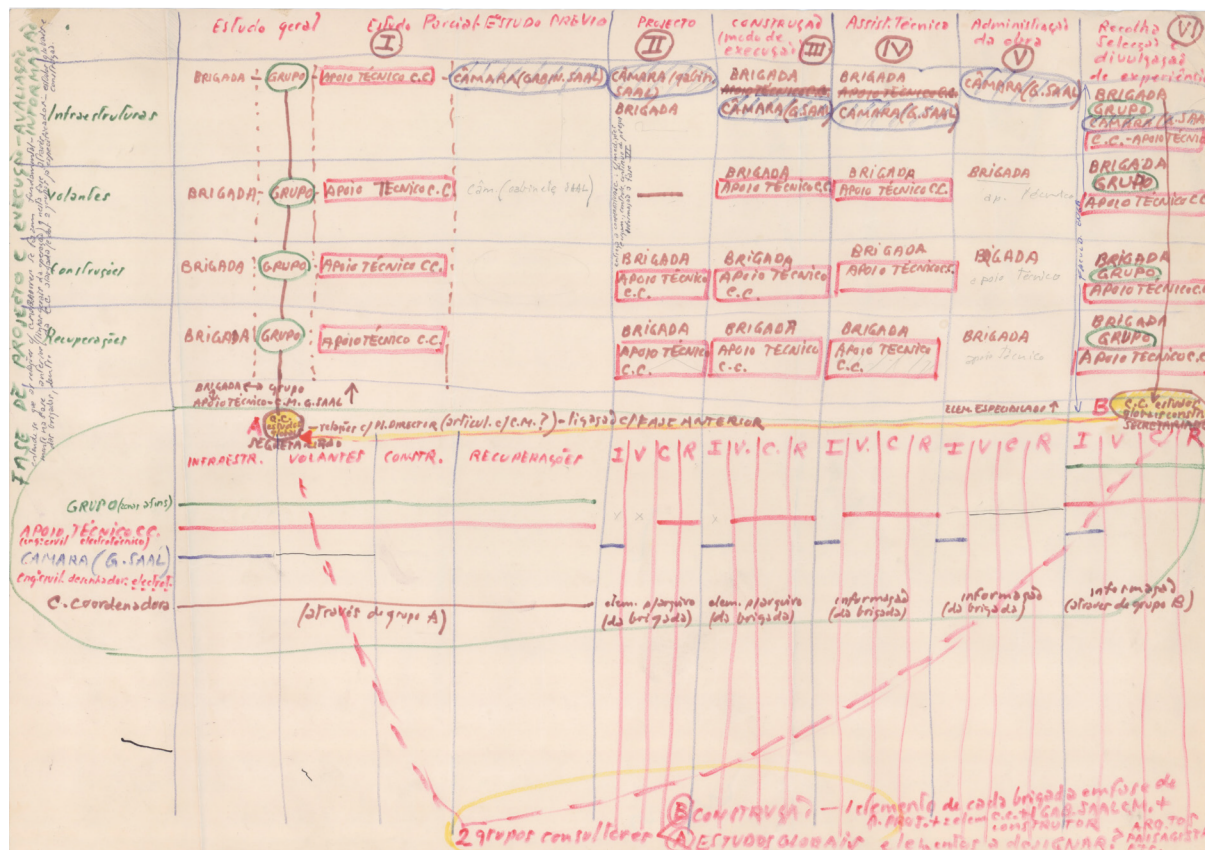 FASE DE PROJETO E EXECUÇÃO - AVALIAÇÃO - INFORMAÇÃO
Estudo geral
Estudo Parcial - ESTUDO PRÉVIO
I
PROJECTO
II
CONSTRUÇÃO
(modo de
execução)
III
Assist. Técnico
IV
Administração
da obra
V
Recolha
Selecção e
divulgação
de experiência
VI
Infraestruturas
BRIGADA - GRUPO - APOIO TÉCNICO C.C. CÂMARA (GABIN. SAAL)
CÂMARA (gabin.
SAAL)
BRIGADA
BRIGADA
APOIO TÉCNICO C.C.
CÂMARA (G.SAAL)
BRIGADA
APOIO TÉCNICO C.C.
CÂMARA (G.SAAL)
CÂMARA (G.SAAL)
BRIGADA
GRUPO
CÂMARA (G.SAAL
C.C.-APOIO TÉCNICO
Volantes
BRIGADA - GRUPO - APOIO TÉCNICO C.C.
Câm. (gabinete SAAL)
BRIGADA
APOIO TÉCNICO C.C.
BRIGADA
APOIO TÉCNICO C.C.
BRIGADA
ap. técnico
BRIGADA
GRUPO
APOIO TÉCNICO C.C
Construções
BRIGADA GRUPO APOIO TÉCNICO CC.
BRIGADA
APOIO TÉCNICO
C.C.
BRIGADA
APOIO TÉCNICO
C.C.
BRIGADA
APOIO TÉCNICO C.C.
BRIGADA
apoio Técnico
BRIGADA
GRUPO
APOIO TÉCNICO C.C
Recuperações
BRIGADA GRUPO APOIO TÉCNICO C.C.
BRIGADA
APOIO TÉCNICO
C.C.
BRIGADA
APOIO TÉCNICO
C.C.
BRIGADA
APOIO TÉCNICO
C.C.
BRIGADA
apoio técnico
BRIGADA
GRUPO
APOIO TÉCNICO C.C
BRIGADA ↔ grupo
APOIO TÉCNICO - C.M. G. SAAL ↑
ELEM. ESPECIALIZADO ↑
A
SECRETARIADO
relações c/ Pl. DIRECTOR (articul. c/ C.M.?) - ligação c/ FASE ANTERIOR
B C.C. estudos
SECRETARIADO
INFRAESTR. VOLANTES CONSTR. RECUPERAÇÕES
I V C R I V. C. R I V. C R I V C R I V C R
GRUPO (zonas afins)
APOIO TÉCNICO C.C.
(eng. civil electrotécnico)
CÂMARA (G. SAAL)
eng. civil. desenhador. electrot.
C. Coordenadora
(através de grupo A)
elem. p/ arquivo
(da brigada)
elem. p/ arquivo
(da brigada)
informação
(da brigada)
informação
(da brigada)
informação
(atravez de grupo B)
2 grupos consultores
B CONSTRUÇÃO - 1 elemento de cada brigada em fase de
A. PROJ. + 2 elem. C.C. + 1 GAB. SAAL C.M. +
CONSTRUTOR
A ESTUDOS GLOBAIS elementos a designar
ARQ.TOS
PAISAGISTA